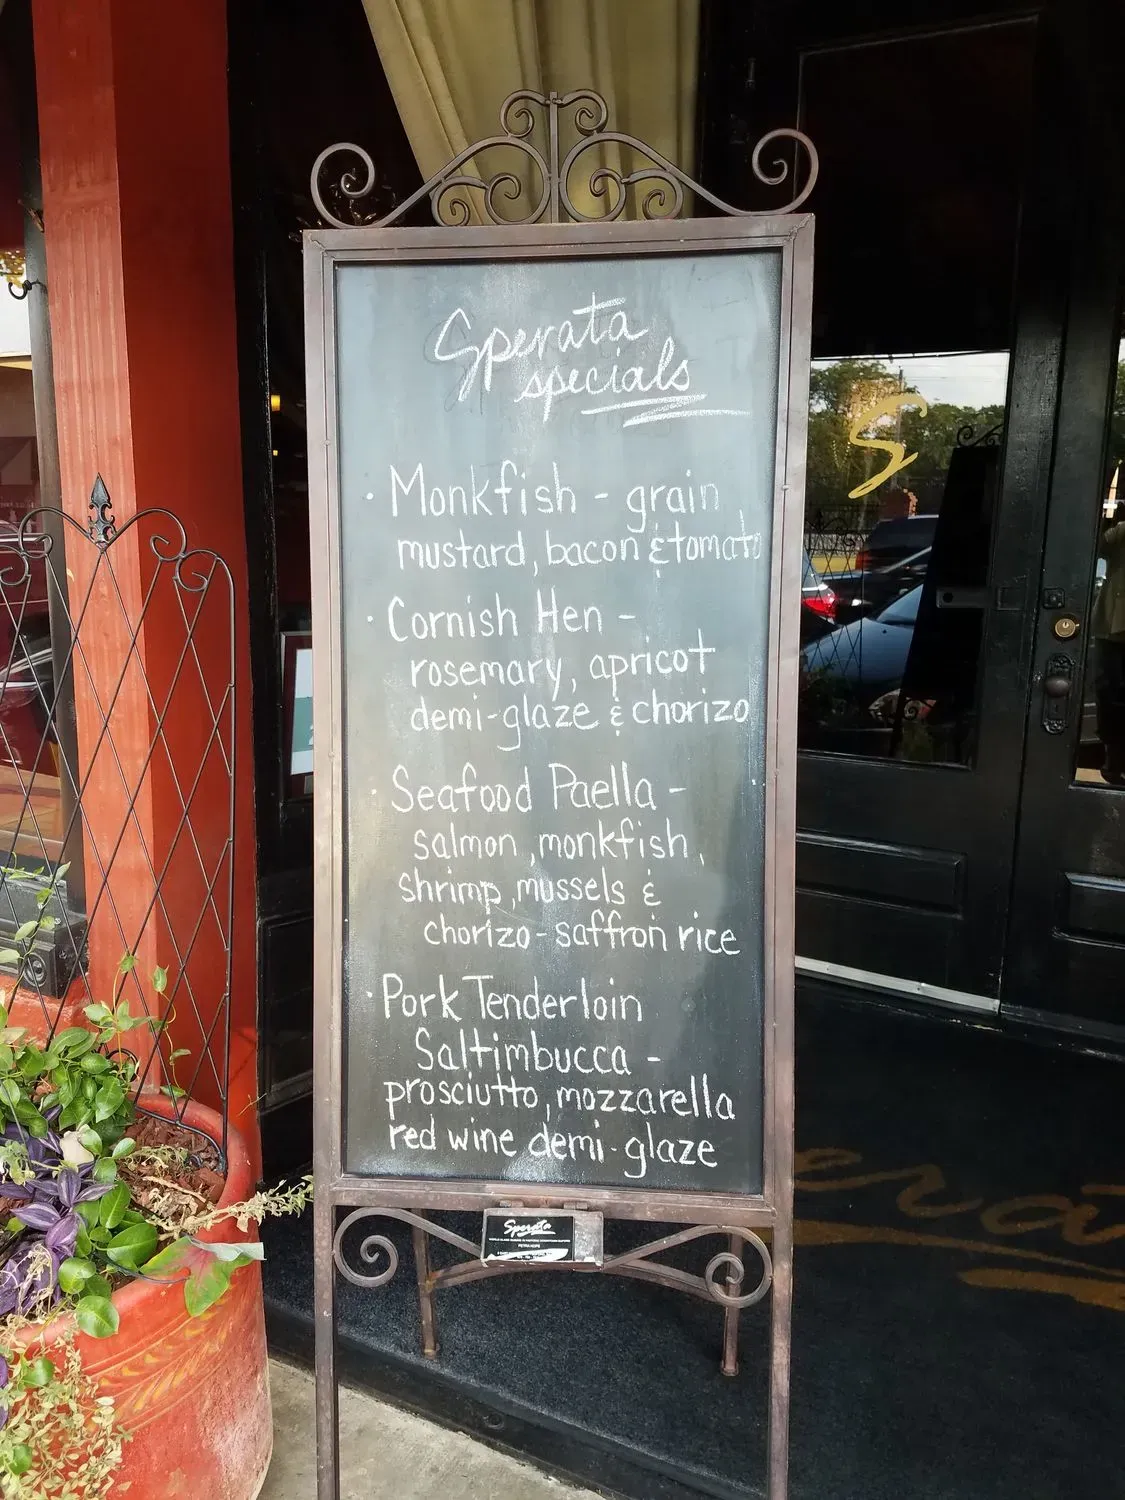 Sperata
specials
· Monkfish - grain
mustard, bacon & tomato
· Cornish Hen -
rosemary, apricot
demi-glaze & chorizo
· Seafood Paella -
salmon, monkfish,
shrimp, mussels &
chorizo - saffron rice
· Pork Tenderloin
Saltimbucca -
prosciutto, mozzarella
red wine demi-glaze
S
Sperata
era